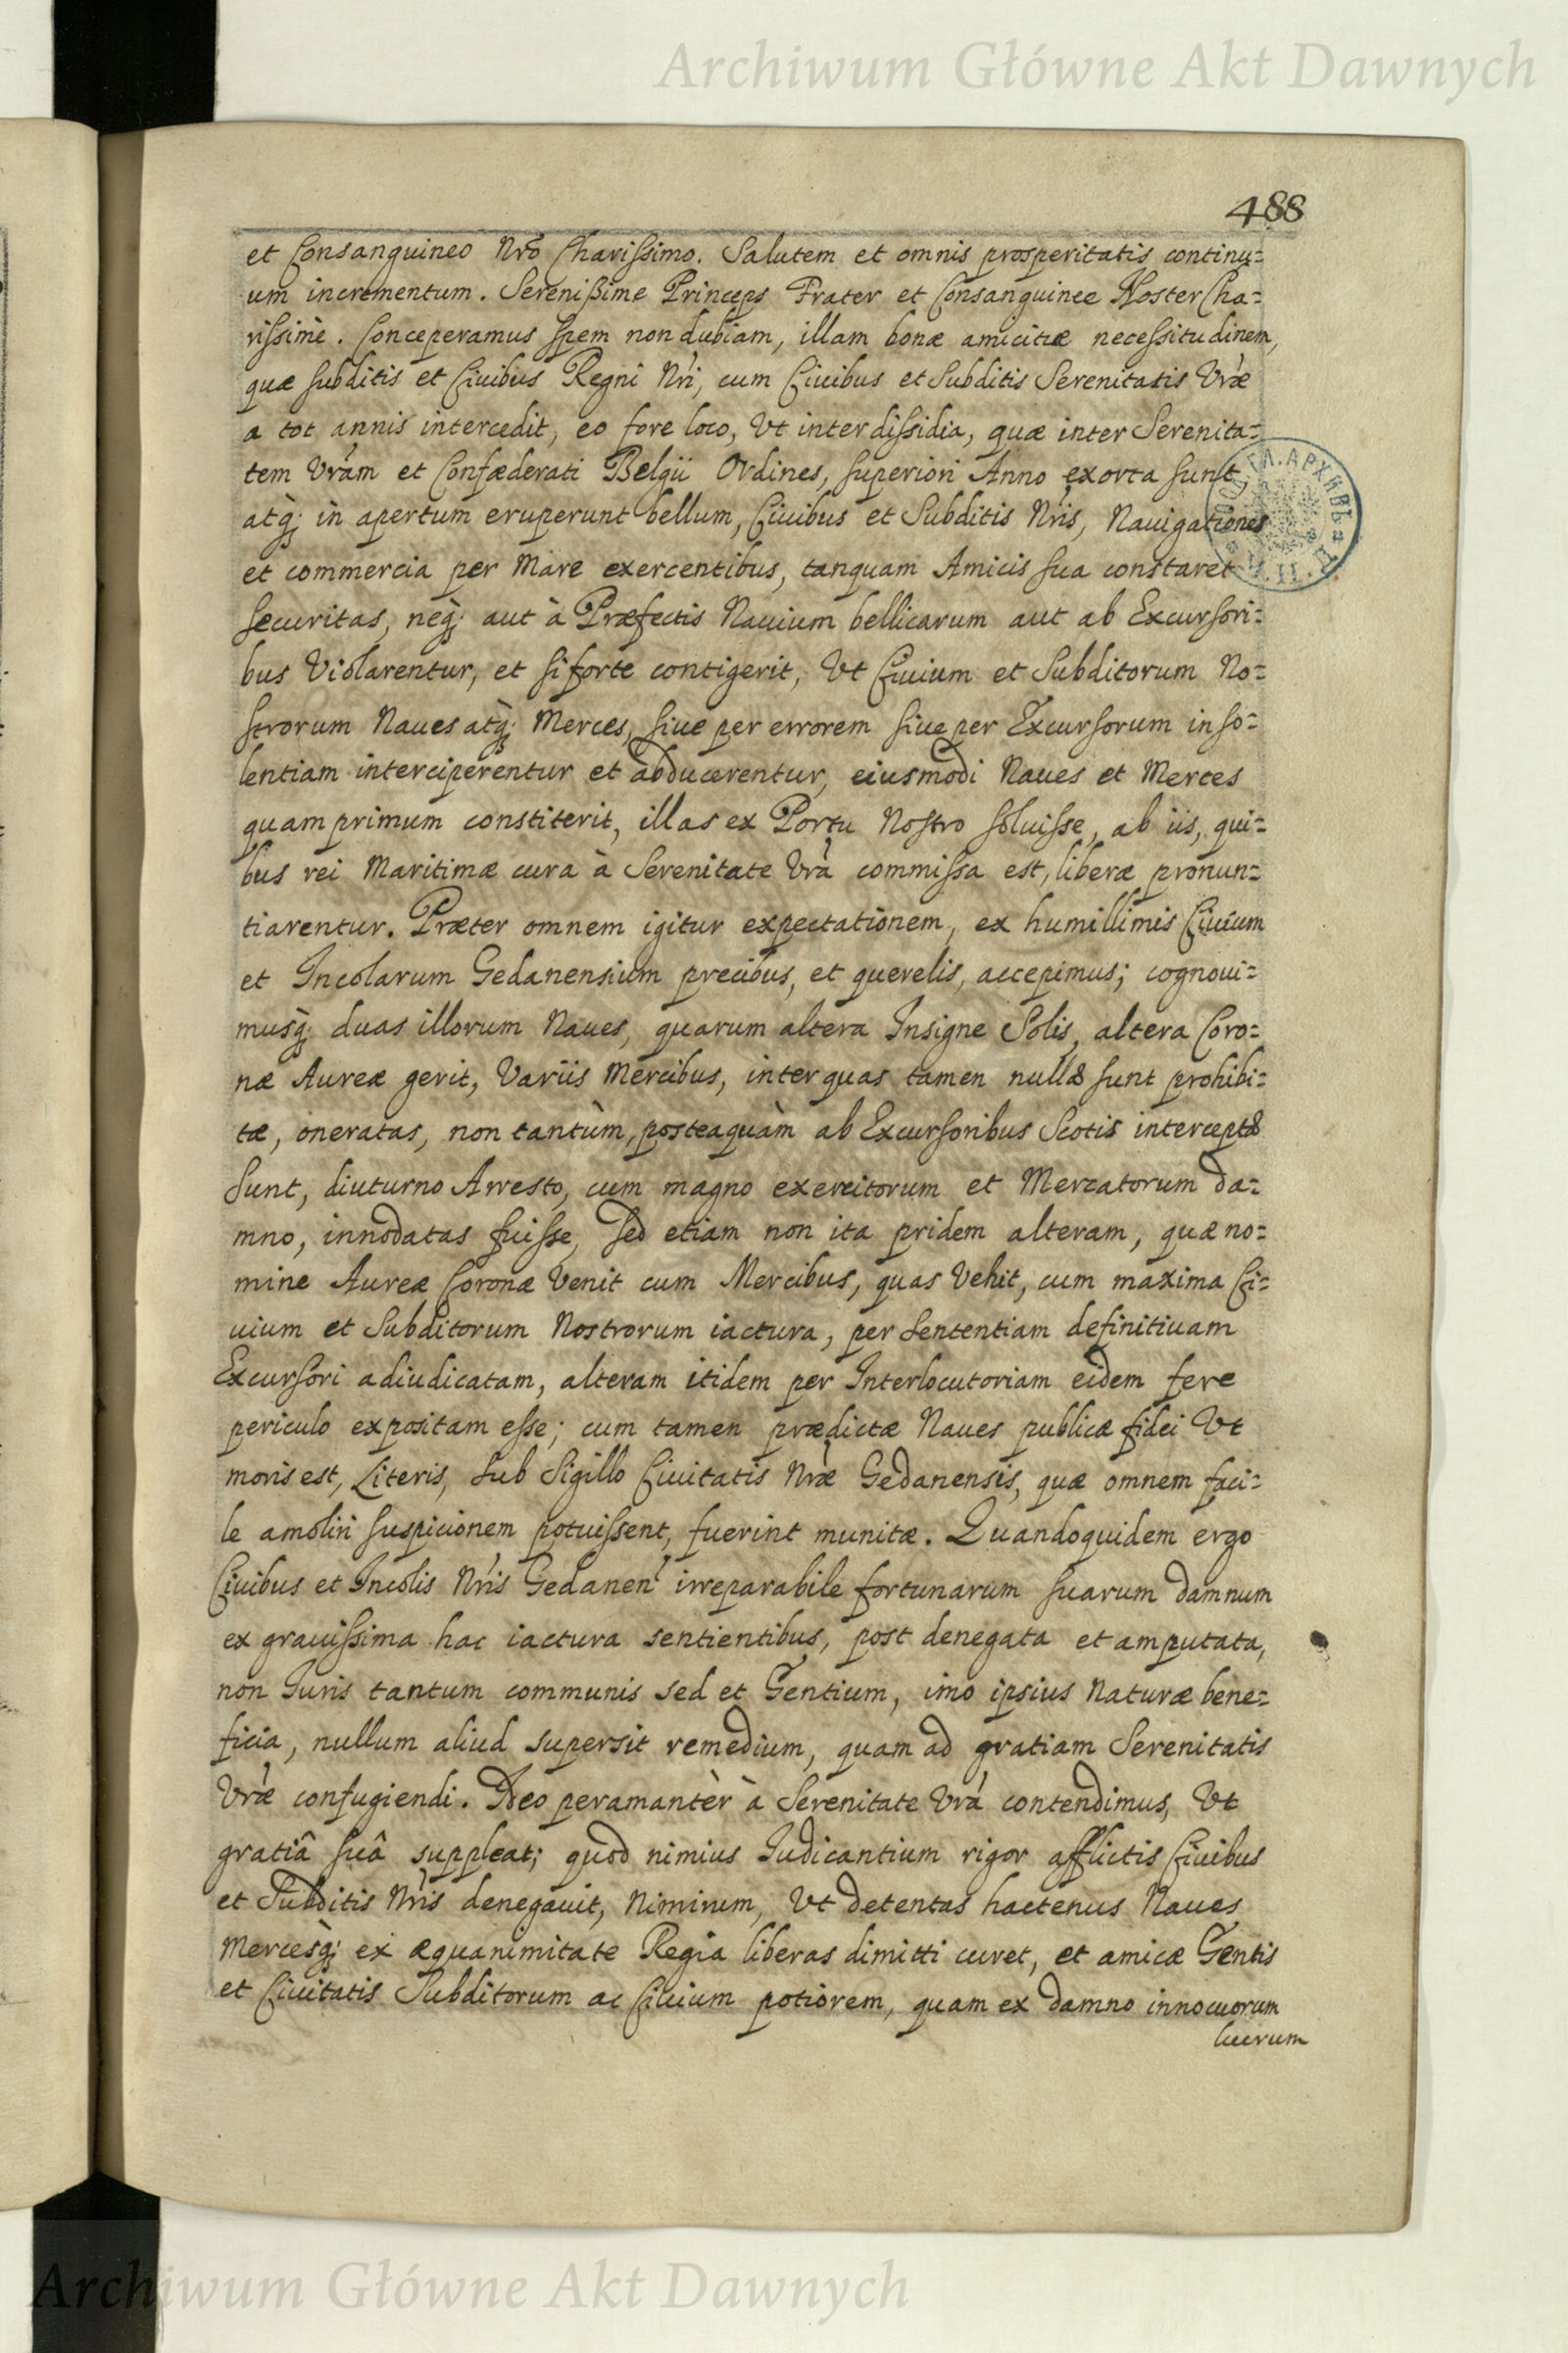 Archiwum Główne Akt Dawnych
488
et Consanguineo Nrõ Charissimo. Salutem et omnis prosperitatis continu=
um incrementum. Serenissime Princeps Frater et Consanguinee Noster Cha=
rissime. Conceperamus spem non dubiam, illam bonæ amicitiæ necessitudinem,
quæ subditis et Ciuibus Regni Nri, cum Ciuibus et Subditis Serenitatis Vræ
a tot annis intercedit, eo fore loco, Vt inter dissidia, quæ inter Serenita=
tem Vram et Confæderati Belgii Ordines, superiori Anno exorta sunt
atq; in apertum eruperunt bellum, Ciuibus et Subditis Nris, Nauigationes
et commercia per Mare exercentibus, tanquam Amicis sua constaret
securitas, neq; aut à Præfectis Nauium bellicarum aut ab Excursori=
bus Violarentur, et si forte contigerit, Vt Ciuium et Subditorum No=
strorum Naues atq; Merces, siue per errorem siue per Excursorum inso=
lentiam interciperentur et abducerentur, eiusmodi Naues et Merces
quamprimum constiterit, illas ex Portu Nostro soluisse, ab iis, qui=
bus rei Maritimæ cura à Serenitate Vra commissa est, liberæ pronun=
tiarentur. Præter omnem igitur expectationem, ex humillimis Ciuium
et Incolarum Gedanensium precibus, et querelis, accepimus; cognoui=
musq; duas illorum Naues, quarum altera Insigne Solis, altera Coro=
næ Aureæ gerit, Variis Mercibus, inter quas tamen nullæ sunt prohibi=
tæ, oneratas, non tantùm, posteaquàm ab Excursoribus Scotis interceptæ
sunt, diuturno Arresto, cum magno exercitorum et Mercatorum da=
mno, innodatas fuisse, sed etiam non ita pridem alteram, quæ no=
mine Aureæ Coronæ Venit cum Mercibus, quas Vehit, cum maxima Ci=
uium et Subditorum Nostrorum iactura, per Sententiam definitiuam
Excursori adiudicatam, alteram itidem per Interlocutoriam eidem fere
periculo expositam esse; cum tamen prædictæ Naues publicæ fidei Vt
moris est, Literis, sub Sigillo Ciuitatis Nræ Gedanensis, quæ omnem faci=
le amoliri suspicionem potuissent, fuerint munitæ. Quandoquidem ergo
Ciuibus et Incolis Nris Gedanen' irreparabile fortunarum suarum damnum
ex grauissima hac iactura sentientibus, post denegata et amputata,
non Iuris tantum communis sed et Gentium, imo ipsius Naturæ bene=
ficia, nullum aliud supersit remedium, quam ad gratiam Serenitatis
Vræ confugiendi. Adeo peramantèr à Serenitate Vra contendimus, Vt
gratiâ suâ suppleat; quod nimius Iudicantium rigor afflictis Ciuibus
et Subditis Nris denegauit, Nimirum, Vt detentas hactenus Naues
Mercesq; ex æquanimitate Regia liberas dimitti curet, et amicæ Gentis
et Ciuitatis Subditorum ac Ciuium potiorem, quam ex damno innocuorum
lucrum
Archiwum Główne Akt Dawnych